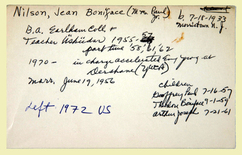 Nilson, Jean Boniface (Mrs.
b. 7-18-1933
Morristown N.J.
B.A. Earlham Coll &
Teacher 1955-57
part time 58, 61, 62
1970 - in charge accelerated Eng. prog at
Dershane
marr. June 19, 1956
children
Geoffrey Paul 7-16-57
9-1-59
Arthur 7-21-61
Left 1972 US